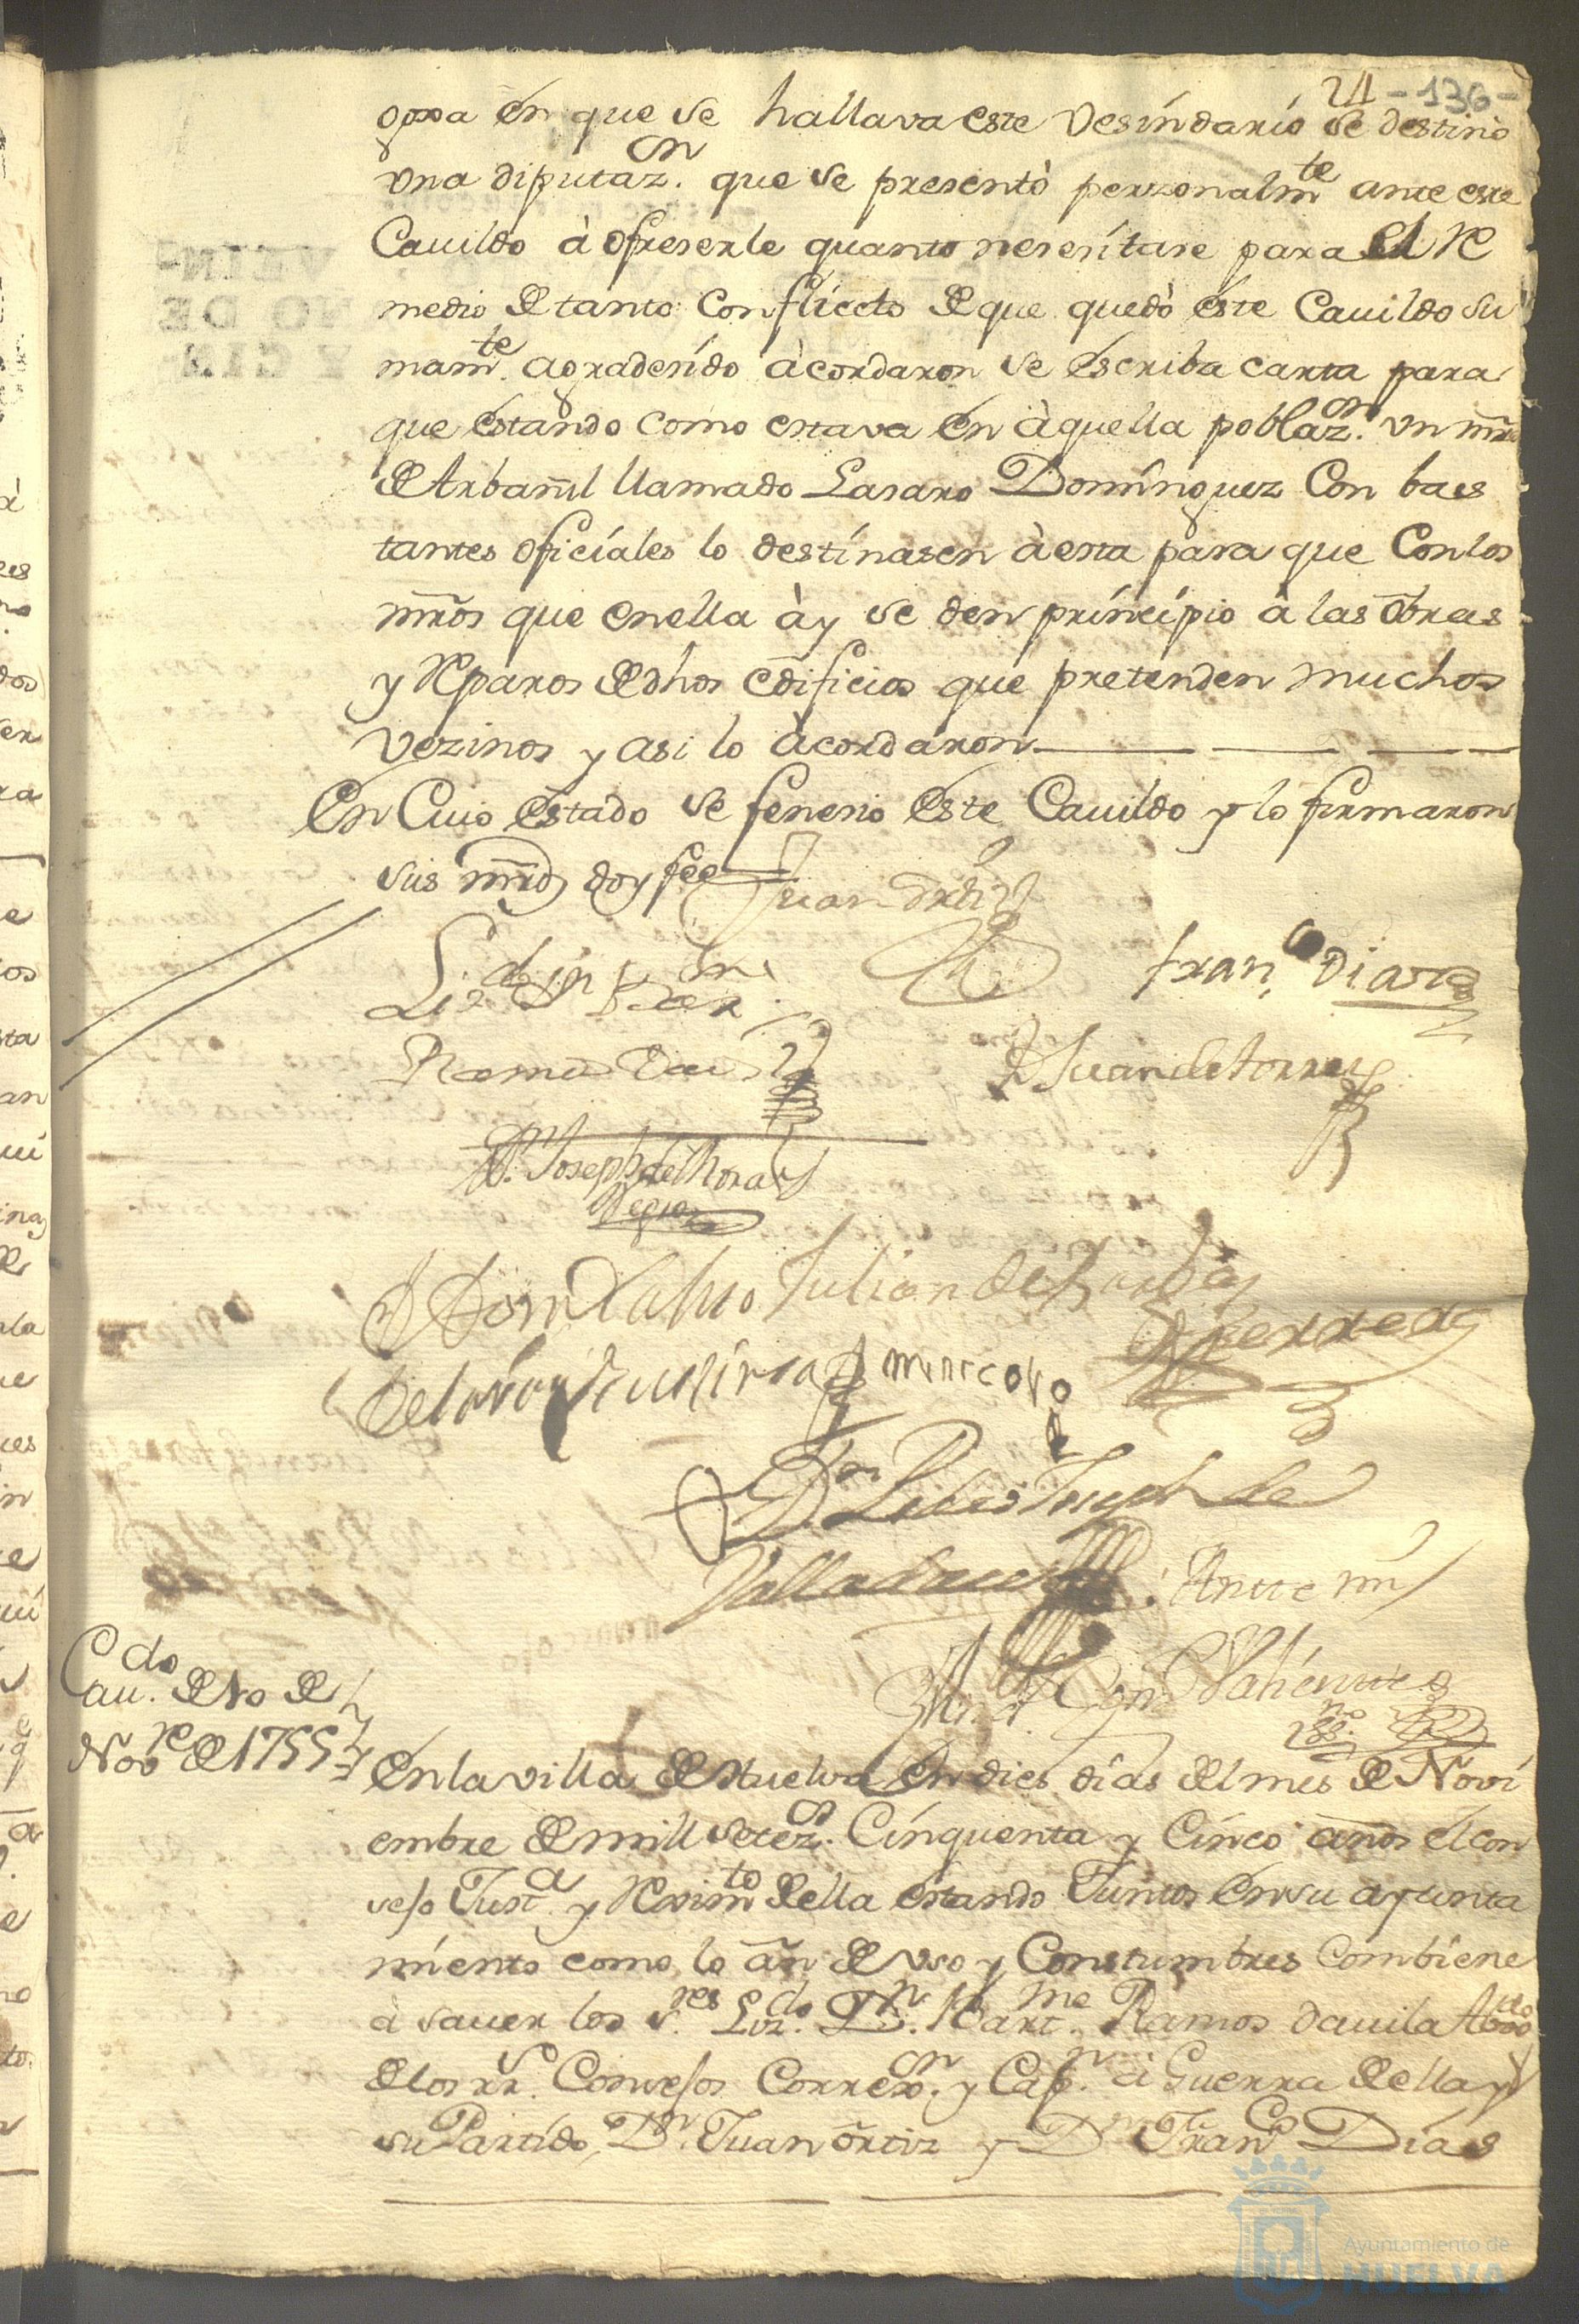 21 -136-
goxa en que se hallava este Vesindario se destinò
vna diputaz.on que se presentò perzonalmte ante este
Cauildo à ofreserle quanto nesesitase para el Re
medio de tanto Conflicto de que quedò este Cauildo su
mamte. agradesido àcordaron se escriba carta para
que estando como estava en àquella poblaz.on vn mro
de Arbañil llamado Lasaro Dominguez Con bas
tantes oficiales lo destinasen àesta para que Conlos
mros que enella ày se den principio à las obras
y Reparos de dhos edificios que pretenden muchos
Vezinos y asi lo àcordaron
En Cuio estado se fenesio este Cauildo y lo firmaron
sus mrds doy fee
Juan Ortiz
Lizdo Dn Barme
Franco Diaz
Ramos Dauila
D Juan de torres
Dn. Joseph de Mora
Negro
Julian de
Heredia
Dn Pedro Joseph de
Valladares
Ante mi
Caudo. de 10 de
Novre de 1755
En la villa de Huelva en dies dias del mes de Novi
embre de mill setezos. Cinquenta y Cinco años el con
sejo Justa. y Reximto della estando Juntos en su ayunta
miento como lo an de vso y Constumbres Combiene
à sauer los s.res Lizdo. Dn. Bartme. Ramos dauila Abogdo
de los rrs. Consejos Correxor. y Capn. à Guerra de ella y
su Partido, Dn. Juan ortiz y Dn Franco Dias
Ayuntamiento de
HUELVA